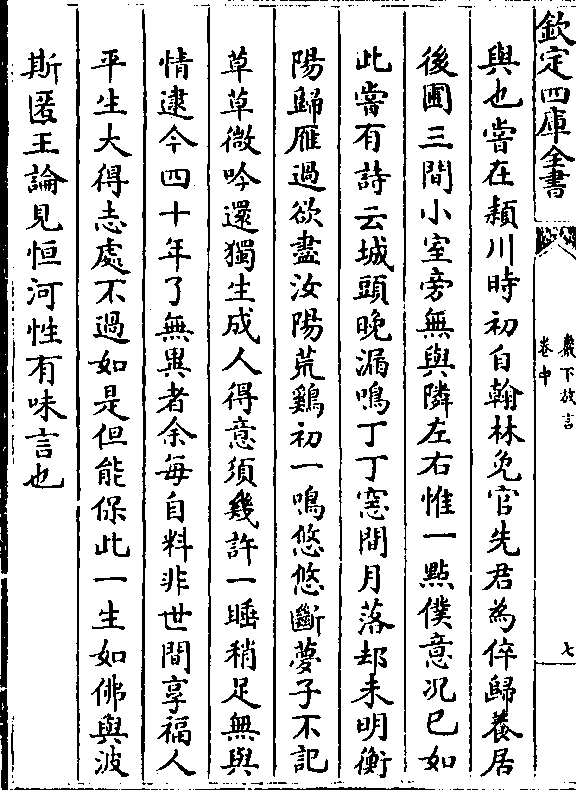 欽定四庫全書
巖下放言
卷中
七
與也嘗在潁川時初自翰林免官先君為倅歸養居
後圃三間小室旁無與隣左右惟一點僕意况已如
此嘗有詩云城頭晚漏鳴丁丁窓間月落却未明衡
陽歸雁過欲盡汝陽荒鷄初一鳴悠悠斷夢子不記
草草微吟還獨生成人得意須幾許一睡稍足無與
情逮今四十年了無異者余每自料非世間享福人
平生大得志處不過如是但能保此一生如佛與波
斯匿王論見恒河性有味言也